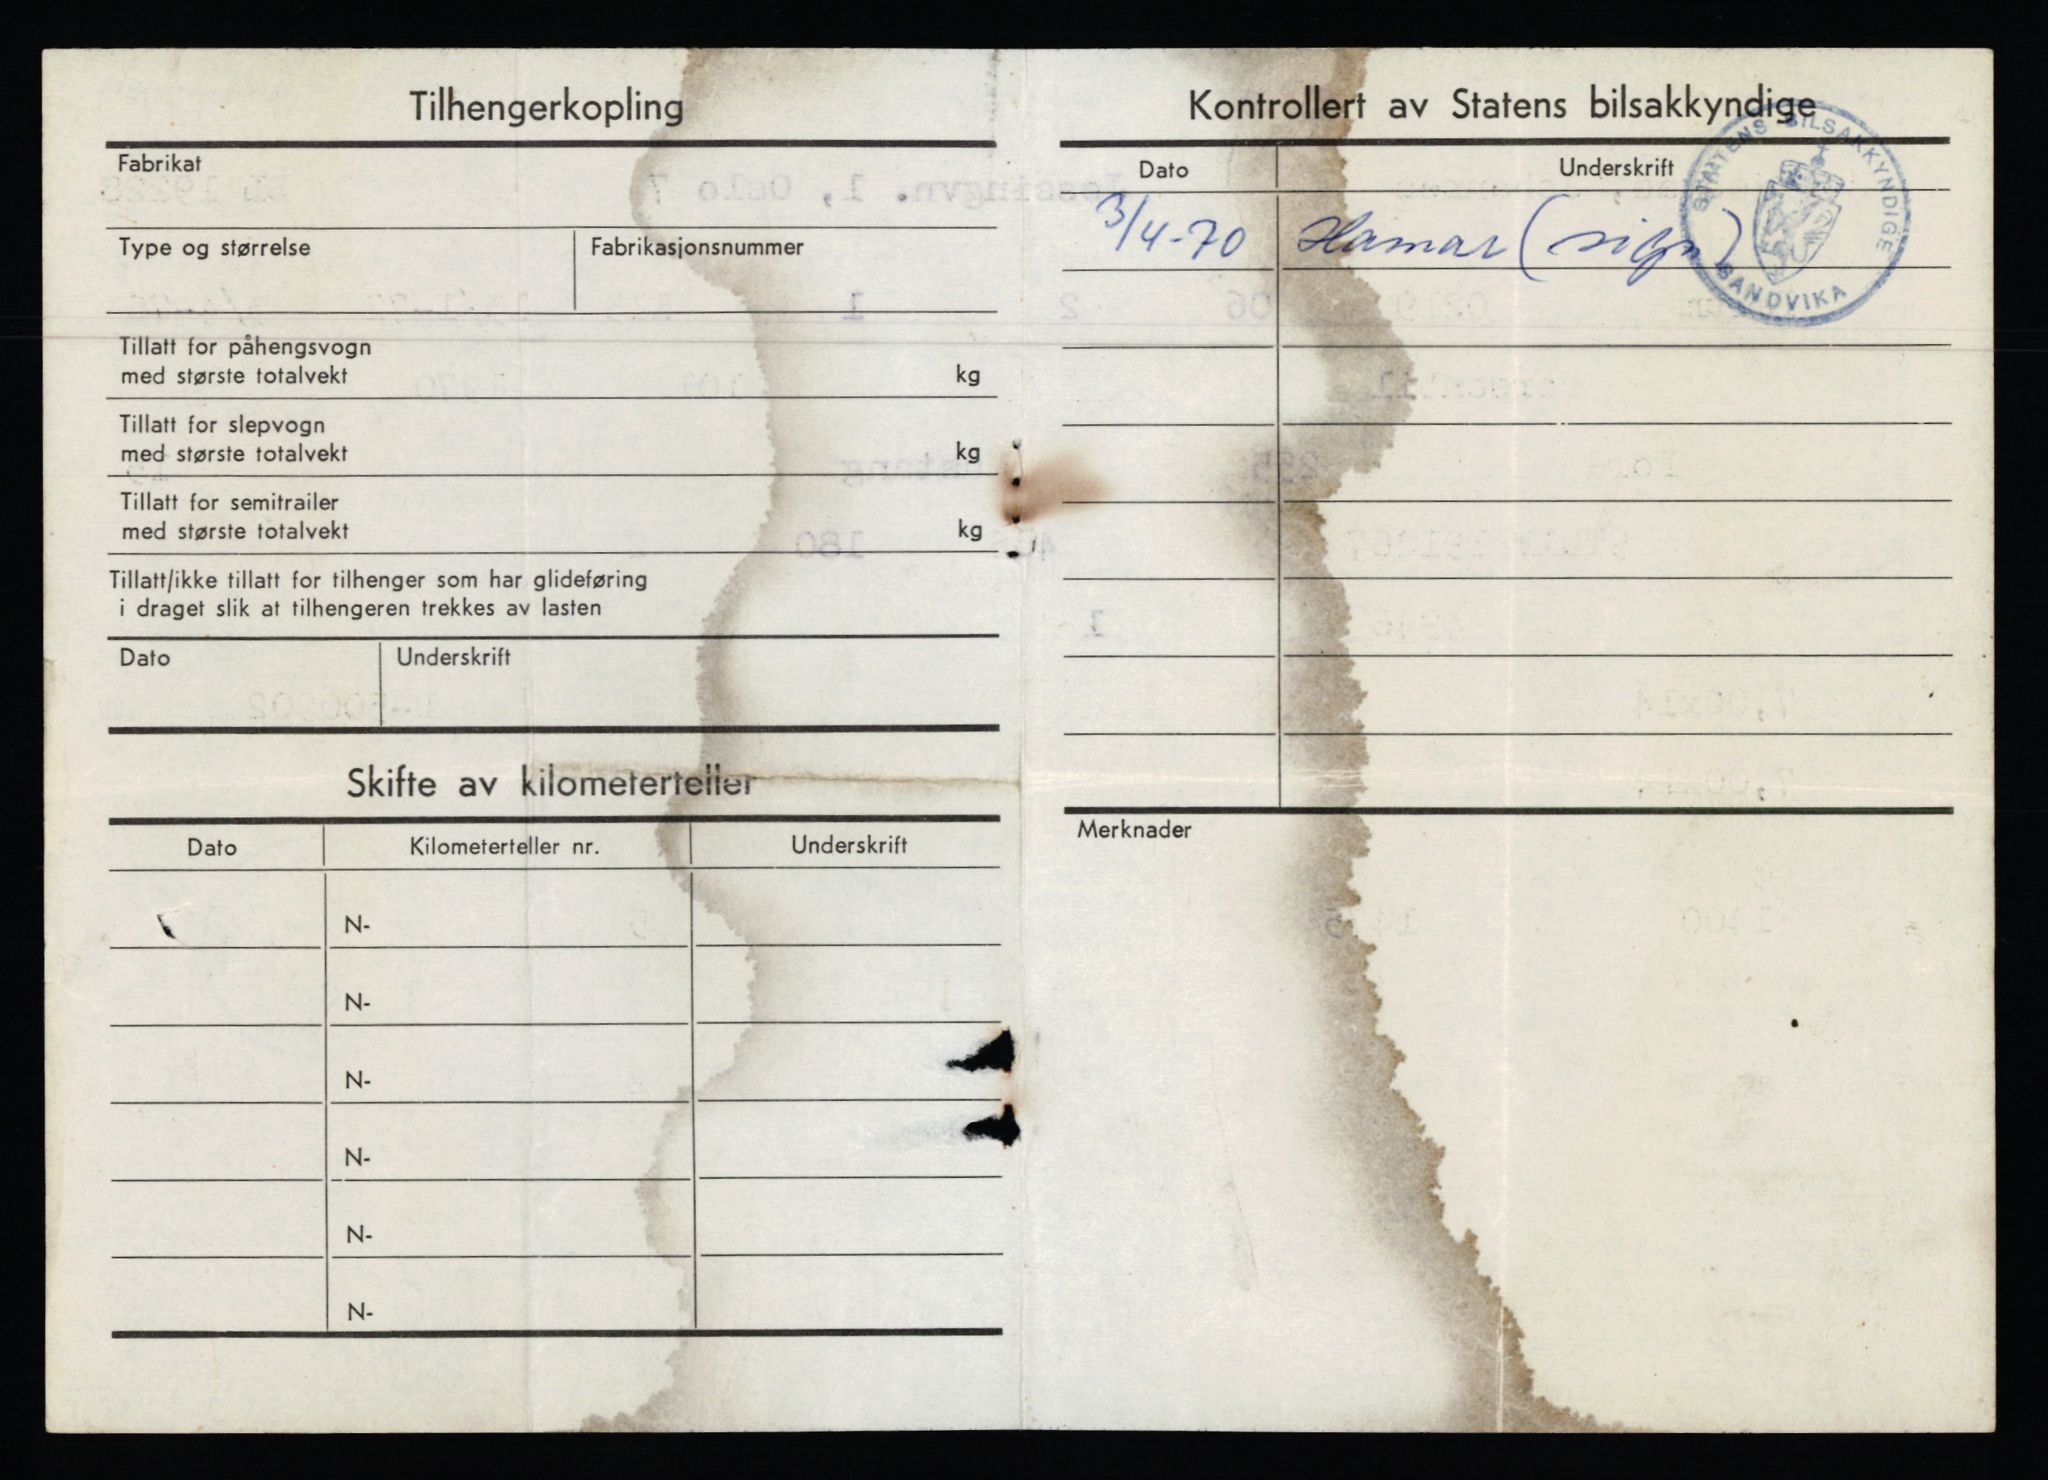 Tilhengerkopling
Fabrikat
Type og størrelse
Fabrikasjonsnummer
Tillatt for påhengsvogn
med største totalvekt kg
Tillatt for slepvogn
med største totalvekt kg
Tillatt for semitrailer
med største totalvekt kg
Tillatt/ikke tillatt for tilhenger som har glideføring
i draget slik at tilhengeren trekkes av lasten
Dato Underskrift
Skifte av kilometerteller
Dato Kilometerteller nr. Underskrift
N-
N-
N-
N-
N-
N-
Kontrollert av Statens bilsakkyndige
Dato Underskrift
3/4-70 Hamar (sign)
STATENS BILSAKKYNDIGE
SANDVIKA
Merknader